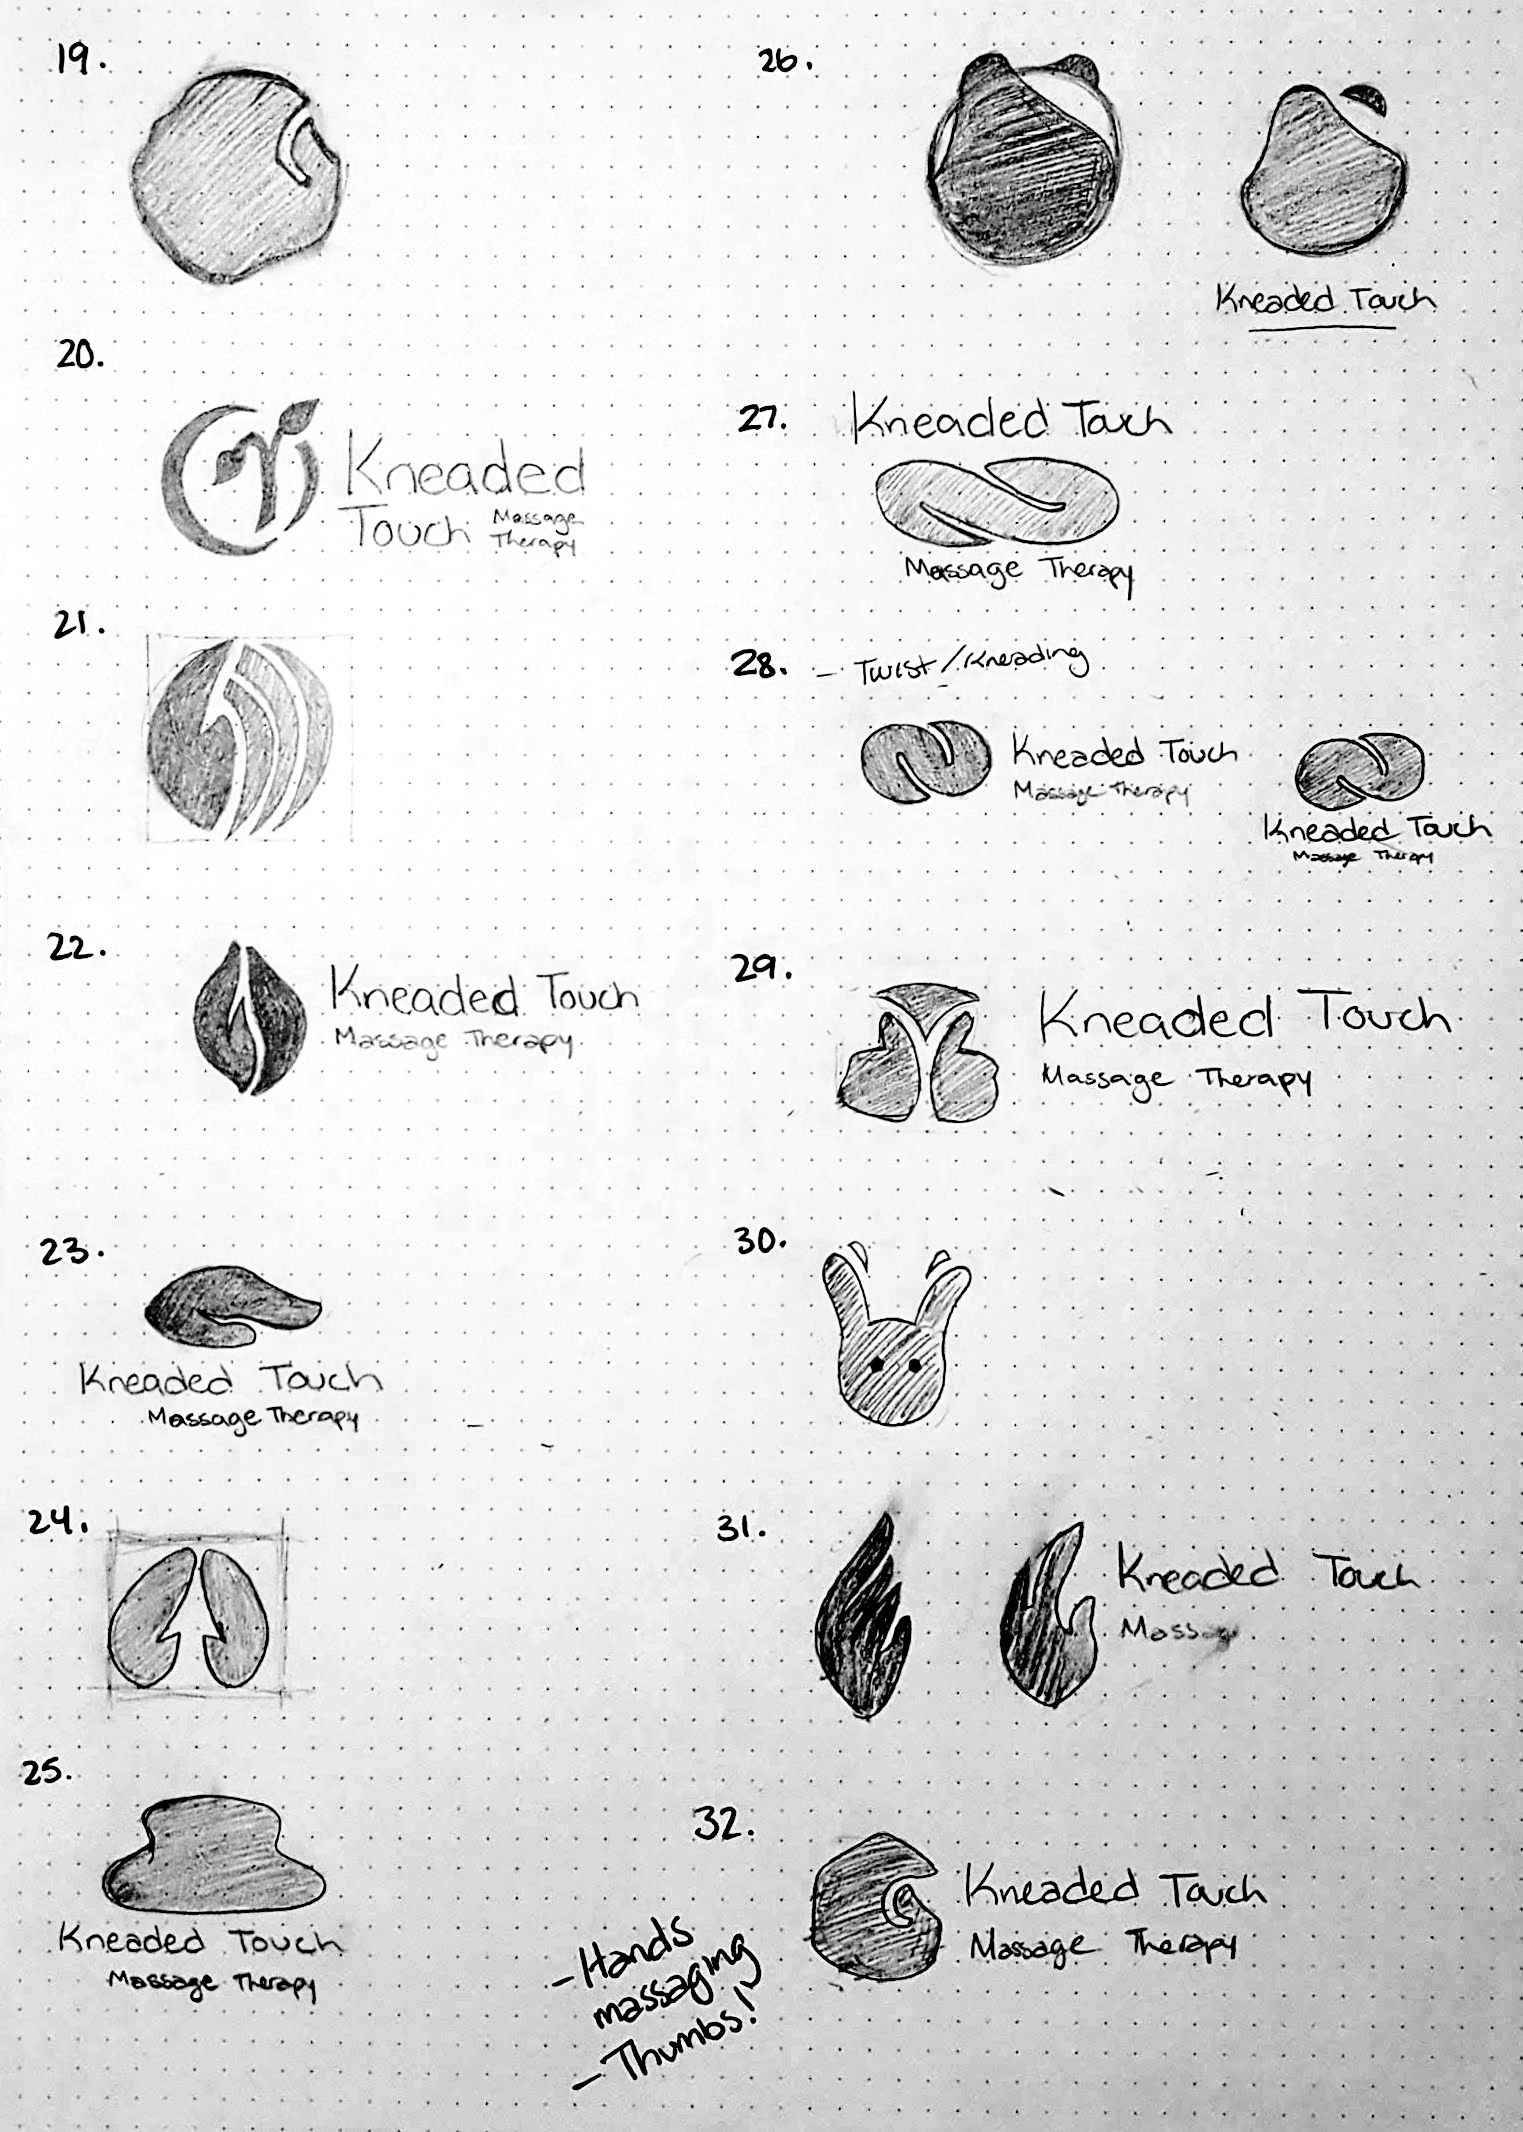 19.
20.
Kneaded
Touch Massage
Therapy
21.
22.
Kneaded Touch
Massage Therapy
23.
Kneaded Touch
Massage Therapy
24.
25.
Kneaded Touch
Massage Therapy
26.
Kneaded Touch
27.
Kneaded Touch
Massage Therapy
28. - Twist/Kneading
Kneaded Touch
Massage Therapy
Kneaded Touch
Massage Therapy
29.
Kneaded Touch
Massage Therapy
30.
31.
Kneaded Touch
Massage
32.
Kneaded Touch
Massage Therapy
- Hands
massaging
- Thumbs!